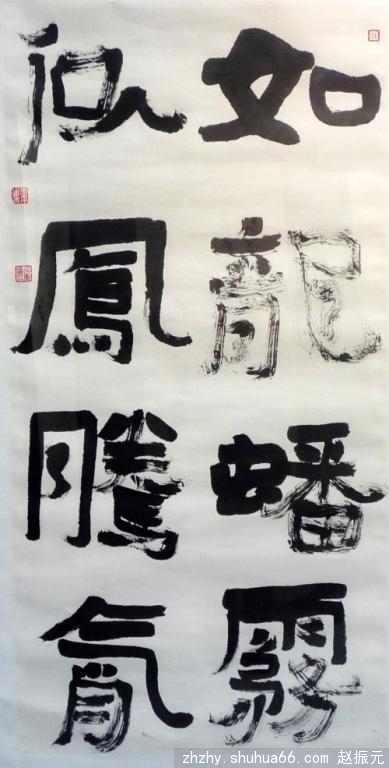 如龍蟠霧
似鳳騰
zhzhy.shuhua66.com 赵振元